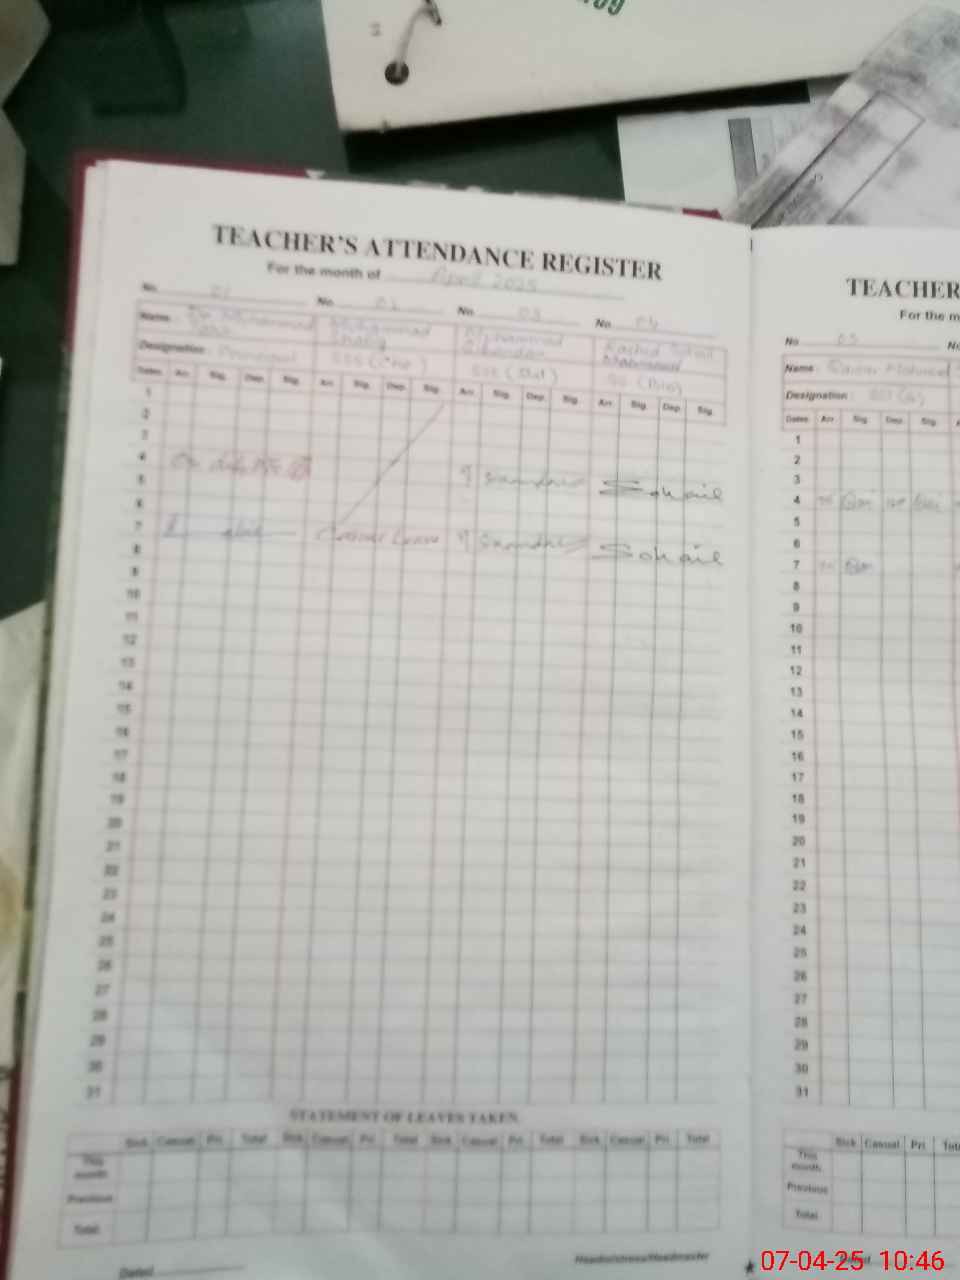 TEACHER'S ATTENDANCE REGISTER
For the month of April 2025
No. 01 No. 02 No. 03 No. 04
Name: Muhammad Muhammad Muhammad Rashid Sohail
Shafiq Sikandar Mahmood
Designation: Principal SSS (Che) SSS (Stat) SS (Bio)
Dates Arr. Sig. Dep. Sig. Arr. Sig. Dep. Sig. Arr. Sig. Dep. Sig. Arr. Sig. Dep. Sig.
1
2
3
4
5 Sohail
6
7 Casual Leave
8 Sohail
9
10
11
12
13
14
15
16
17
18
19
20
21
22
23
24
25
26
27
28
29
30
31
STATEMENT OF LEAVES TAKEN
Sick Casual Pri. Total Sick Casual Pri. Total Sick Casual Pri. Total Sick Casual Pri. Total
This month
Previous
Total
Dated
Headmistress/Headmaster
TEACHER
For the m
No 05 No
Name: Mahmood
Designation:
Dates Arr. Sig. Dep. Sig.
1
2
3
4
5
6
7
8
9
10
11
12
13
14
15
16
17
18
19
20
21
22
23
24
25
26
27
28
29
30
31
Sick Casual Pri. Tot
This month
Previous
Total
07-04-25 10:46